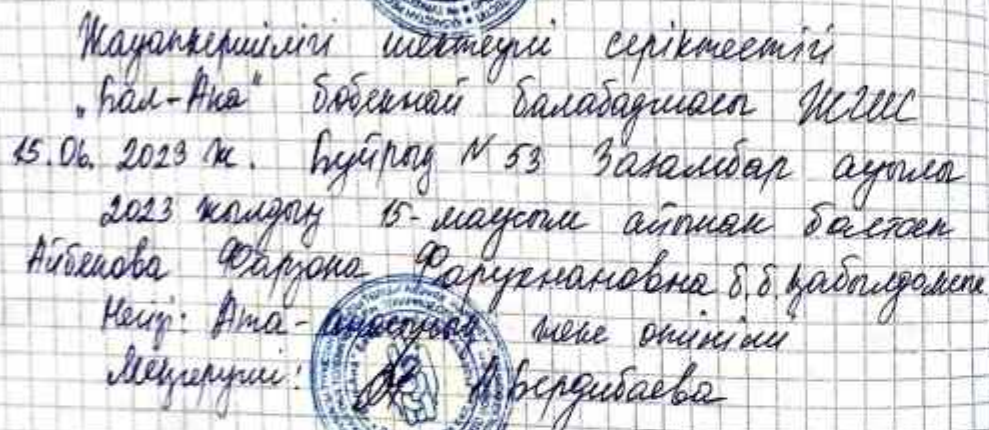 Жауапкершілігі шектеулі серіктестігі
"Бал-Ана" бөбекжай балабақшасы ЖШС
15.06. 2023 ж. Бұйрық N 53 Зағамбар ауылы
2023 жылдың 15-маусым айынан бастап
Айбекова Фарзона Фарухжановна б.б. қабылдансын
Негіз: Ата-анасының жеке өтініші
Меңгеруші: А Бердибаева